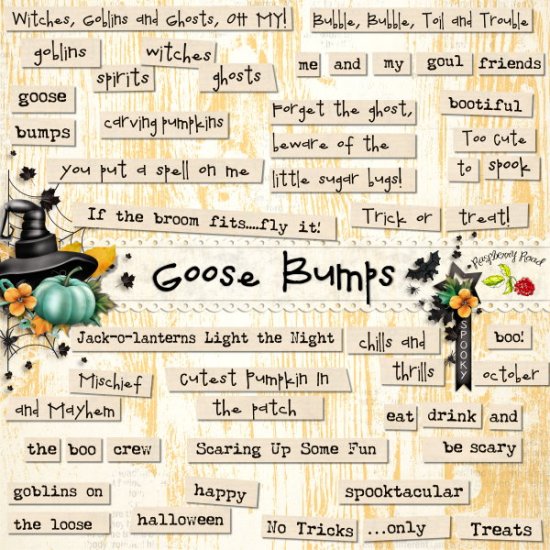 Witches, Goblins and Ghosts, OH MY!
Bubble, Bubble, Toil and Trouble
goblins
witches
spirits
ghosts
me and my goul friends
goose
bumps
carving pumpkins
Forget the ghost,
beware of the
little sugar bugs!
bootiful
Too cute
to spook
you put a spell on me
If the broom fits....fly it!
Trick or treat!
Goose Bumps
Raspberry Road
SPOOKY
Jack-o-lanterns Light the Night
chills and
thrills
boo!
october
Mischief
and Mayhem
Cutest Pumpkin In
the patch
eat drink and
be scary
the boo crew
Scaring Up Some Fun
goblins on
the loose
happy
halloween
spooktacular
No Tricks ...only Treats